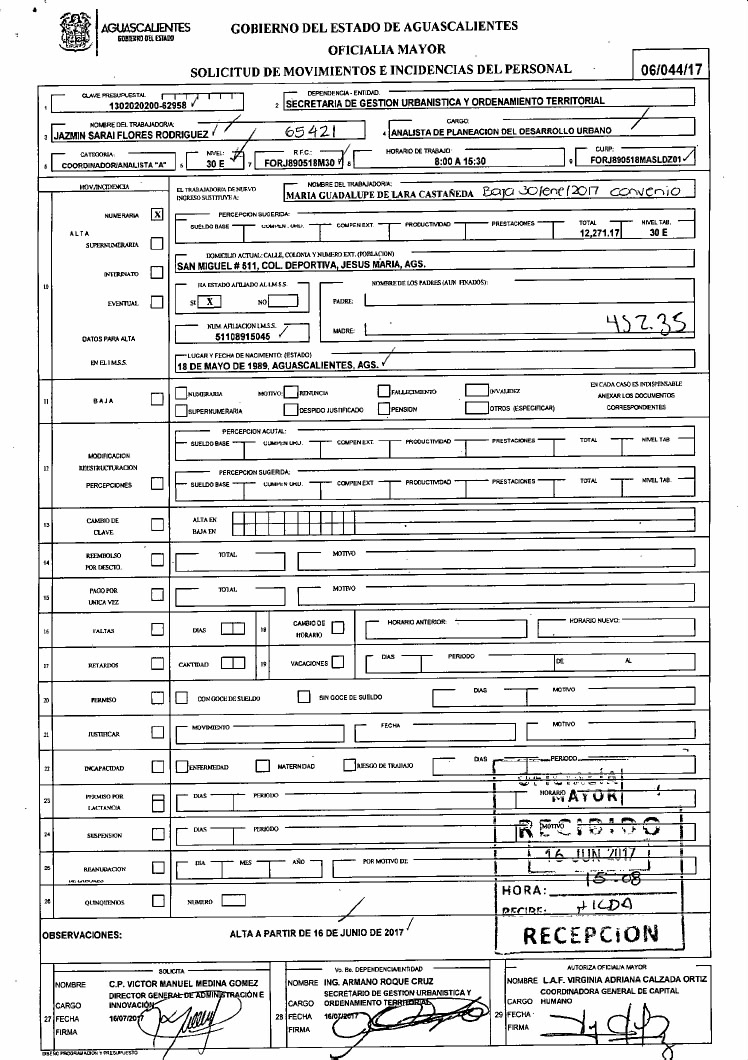 AGUASCALIENTES
GOBIERNO DEL ESTADO
GOBIERNO DEL ESTADO DE AGUASCALIENTES
OFICIALIA MAYOR
SOLICITUD DE MOVIMIENTOS E INCIDENCIAS DEL PERSONAL
06/044/17
CLAVE PRESUPUESTAL
1 1302020200-62958
DEPENDENCIA - ENTIDAD.
2 SECRETARIA DE GESTION URBANISTICA Y ORDENAMIENTO TERRITORIAL
NOMBRE DEL TRABAJADOR/A:
3 JAZMIN SARAI FLORES RODRIGUEZ 65421
CARGO:
4 ANALISTA DE PLANEACION DEL DESARROLLO URBANO
CATEGORIA:
COORDINADOR/ANALISTA "A"
NIVEL:
30 E
R.F.C.:
7 FORJ890518M30
HORARIO DE TRABAJO:
8 8:00 A 15:30
CURP:
9 FORJ890518MASLDZ01
MOV/INCIDENCIA
EL TRABAJADOR/A DE NUEVO
INGRESO SUSTITUYE A:
NOMBRE DEL TRABAJADOR/A:
MARIA GUADALUPE DE LARA CASTAÑEDA Baja 30/ene/2017 convenio
10
ALTA
NUMERARIA X
SUPERNUMERARIA
INTERINATO
EVENTUAL
DATOS PARA ALTA
EN EL I M.S.S.
PERCEPCION SUGERIDA:
SUELDO BASE COMPEN. URG. COMPEN EXT. PRODUCTIVIDAD PRESTACIONES TOTAL NIVEL TAB.
12,271.17 30 E
DOMICILIO ACTUAL: CALLE, COLONIA Y NUMERO EXT. (POBLACION)
SAN MIGUEL # 511, COL. DEPORTIVA, JESUS MARIA, AGS.
HA ESTADO AFILIADO AL I.M.S.S.
SI X NO
NOMBRE DE LOS PADRES (AUN FINADOS):
PADRE:
MADRE:
452.35
NUM. AFILIACION I.M.S.S.
51108915045
LUGAR Y FECHA DE NACIMIENTO: (ESTADO)
18 DE MAYO DE 1989, AGUASCALIENTES, AGS.
11 BAJA
NUMERARIA MOTIVO: RENUNCIA FALLECIMIENTO INVALIDEZ
SUPERNUMERARIA DESPIDO JUSTIFICADO PENSION OTROS (ESPECIFICAR)
EN CADA CASO ES INDISPENSABLE
ANEXAR LOS DOCUMENTOS
CORRESPONDIENTES
12
MODIFICACION
REESTRUCTURACION
PERCEPCIONES
PERCEPCION ACUTAL:
SUELDO BASE COMPEN URG. COMPEN EXT. PRODUCTIVIDAD PRESTACIONES TOTAL NIVEL TAB
PERCEPCION SUGERIDA:
SUELDO BASE COMPEN URG. COMPEN EXT PRODUCTIVIDAD PRESTACIONES TOTAL NIVEL TAB.
13 CAMBIO DE
CLAVE
ALTA EN
BAJA EN
14 REEMBOLSO
POR DESCTO.
TOTAL MOTIVO
15 PAGO POR
UNICA VEZ
TOTAL MOTIVO
16 FALTAS DIAS
18 CAMBIO DE
HORARIO
HORARIO ANTERIOR: HORARIO NUEVO:
17 RETARDOS CANTIDAD 19 VACACIONES DIAS PERIODO DE AL
20 PERMISO CON GOCE DE SUELDO SIN GOCE DE SUELDO DIAS MOTIVO
21 JUSTIFICAR MOVIMIENTO FECHA MOTIVO
22 INCAPACIDAD ENFERMEDAD MATERNIDAD RIESGO DE TRABAJO DIAS PERIODO
23 PERMISO POR
LACTANCIA
DIAS PERIODO HORARIO
MAYOR
24 SUSPENSION DIAS PERIODO MOTIVO
RECIBIDO
16 JUN 2017
25 REANUDACION DIA MES AÑO POR MOTIVO DE
15-08
HORA:
RECIBE: HILDA
26 QUINQUENIOS NUMERO
RECEPCION
OBSERVACIONES: ALTA A PARTIR DE 16 DE JUNIO DE 2017
SOLICITA
NOMBRE C.P. VICTOR MANUEL MEDINA GOMEZ
DIRECTOR GENERAL DE ADMINISTRACIÓN E
CARGO INNOVACIÓN
27 FECHA 16/07/2017
FIRMA
Vo. Bo. DEPENDENCIA/ENTIDAD
NOMBRE ING. ARMANO ROQUE CRUZ
SECRETARIO DE GESTION URBANISTICA Y
CARGO ORDENAMIENTO TERRITORIAL
28 FECHA 16/07/2017
FIRMA
AUTORIZA OFICIALIA MAYOR
NOMBRE L.A.F. VIRGINIA ADRIANA CALZADA ORTIZ
COORDINADORA GENERAL DE CAPITAL
CARGO HUMANO
29 FECHA
FIRMA
DISEÑO PROGRAMACION Y PRESUPUESTO